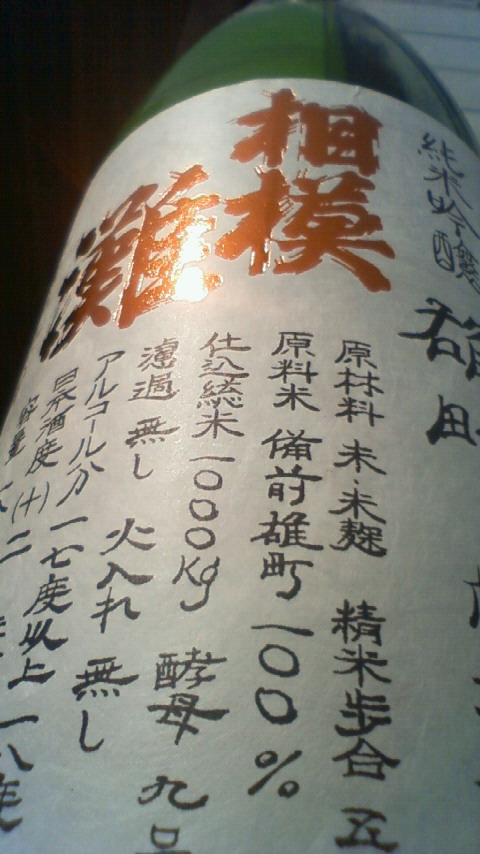 純米吟醸
雄町
相模
灘
原材料 米・米麹 精米歩合 五
原料米 備前雄町 一〇〇%
仕込総米 一〇〇〇Kg 酵母 九号
濾過 無し 火入れ 無し
アルコール分 一七度以上 一八度
日本酒度 (十) 二
容量